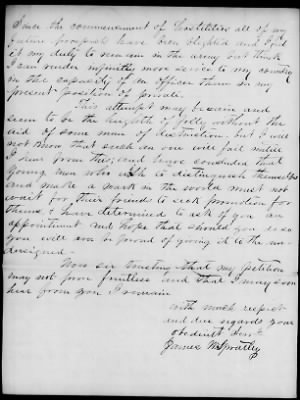 Since the commencement of hostilities all of my
future prospects have been blighted and I feel
it my duty to remain in the army but think
I can render infinitely more service to my country
in the capacity of an officer than in my
present position of private.
This attempt may be vain and
seem to be the heighth of folly without the
aid of some man of distinction but I will
not know that such an one will fail until
I hear from this, and have concluded that
young men who wish to distinguish themselves
and make a mark in the world must not
wait for their friends to seek promotion for
them, & have determined to ask of you an
appointment and hope that should you do so
you will ever be proud of giving it to the un-
designed.
Now sir trusting that my petition
may not prove fruitless and that I may soon
hear from you I remain
with much respect
and due regards your
obedient Servt
James W Spratley